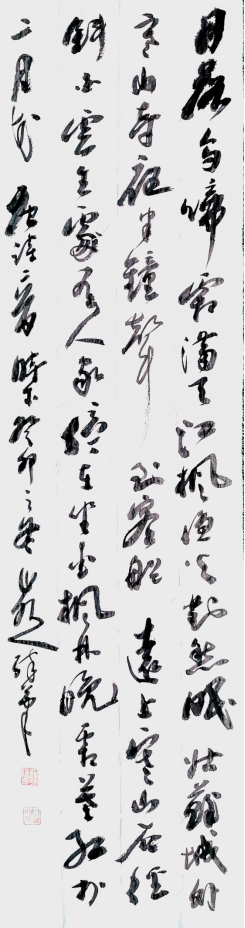 月落乌啼霜满天江枫渔火对愁眠姑苏城外
寒山寺夜半钟声到客船 远上寒山石径
斜白雲生處有人家停车坐爱枫林晚霜葉红于
二月花 唐诗二首 時在癸卯之